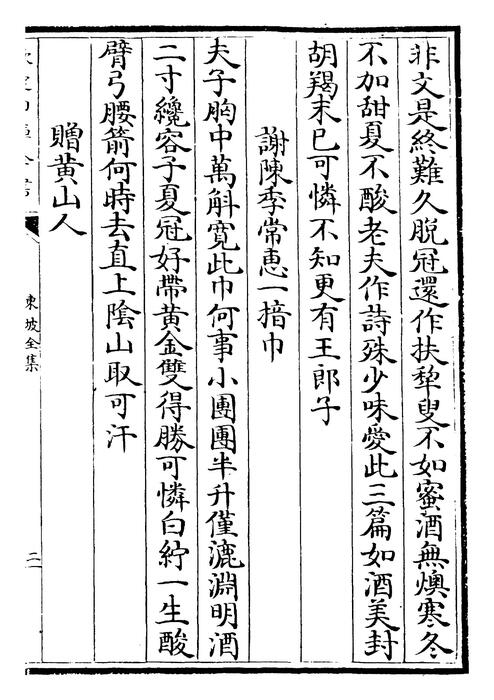 非文是終難久脫冠還作扶犂叟不如蜜酒無燠寒冬
不加甜夏不酸老夫作詩殊少味愛此三篇如酒美封
胡羯末已可憐不知更有王郎子
謝陳季常恵一揞巾
夫子胸中萬斛寛此巾何事小團團半升僅漉淵明酒
二寸纔容子夏冠好帶黄金雙得勝可憐白紵一生酸
臂弓腰箭何時去直上隂山取可汗
贈黄山人
東坡全集
二